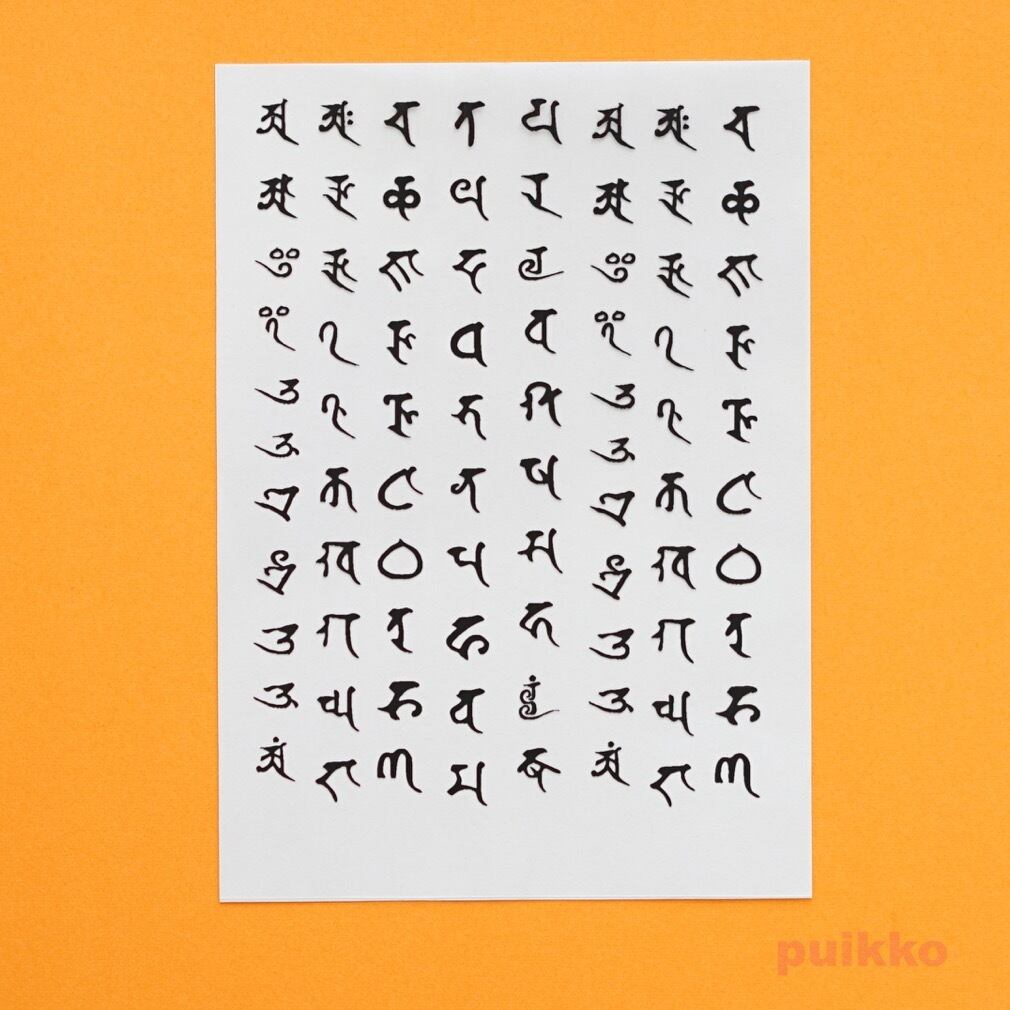 𑖀 𑖁 𑖂 𑖃 𑖄 𑖅 𑖊 𑖋 𑖌 𑖍 𑖀𑖽
𑖀𑖾 𑖆 𑖇 𑖈 𑖉 𑖎 𑖏 𑖐 𑖑 𑖒
𑖓 𑖔 𑖕 𑖖 𑖗 𑖘 𑖙 𑖚 𑖛 𑖜
𑖝 𑖞 𑖟 𑖠 𑖡 𑖢 𑖣 𑖤 𑖥 𑖦
𑖧 𑖨 𑖩 𑖪 𑖫 𑖬 𑖭 𑖮 𑖩𑖿𑖩𑖽 𑖎𑖿𑖬
𑖀 𑖁 𑖂 𑖃 𑖄 𑖅 𑖊 𑖋 𑖌 𑖍 𑖀𑖽
𑖀𑖾 𑖆 𑖇 𑖈 𑖉 𑖎 𑖏 𑖐 𑖑 𑖒
𑖓 𑖔 𑖕 𑖖 𑖗 𑖘 𑖙 𑖚 𑖛 𑖜
puikko